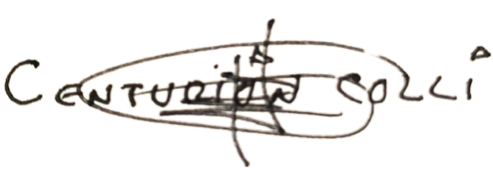 CENTURION COLLI